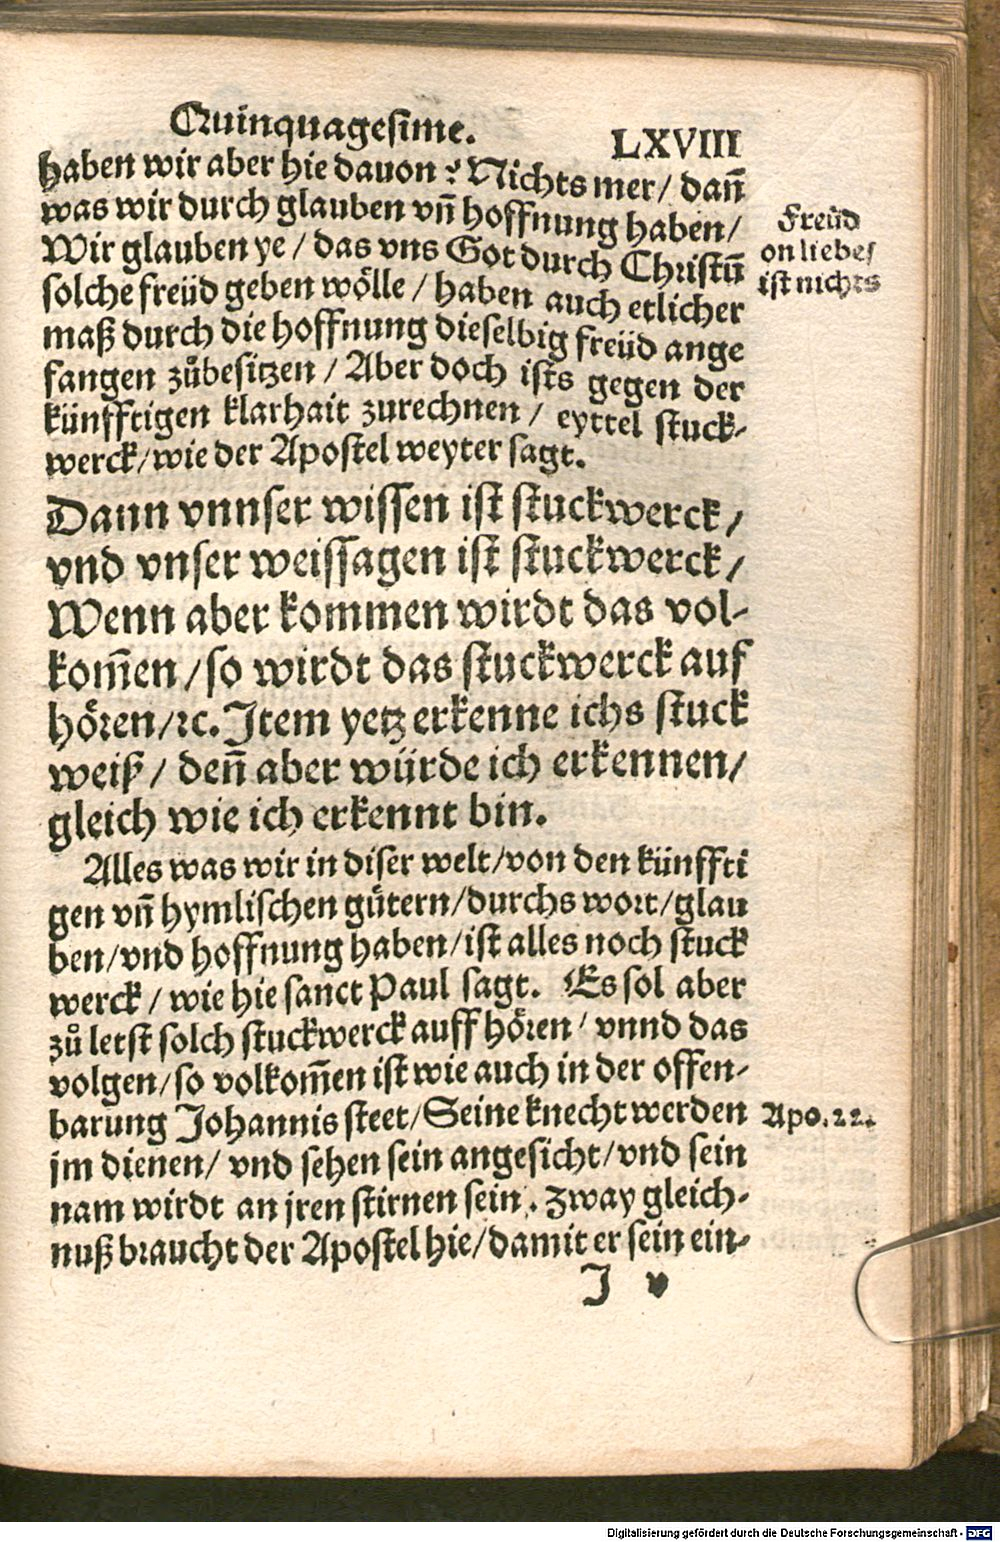 Quinquagesime.
LXVIII
haben wir aber hie dauon? Nichts mer/ dañ
was wir durch glauben vñ hoffnung haben/
Wir glauben ye/ das vns Got durch Christũ
solche freüd geben wölle/ haben auch etlicher
maß durch die hoffnung dieselbig freüd ange
fangen zůbesitzen/ Aber doch ists gegen der
künfftigen klarhait zurechnen/ eyttel stuck-
werck/ wie der Apostel weyter sagt.
Freüd
on liebe/
ist nichts
Dann vnnser wissen ist stuckwerck/
vnd vnser weissagen ist stuckwerck/
Wenn aber kommen wirdt das vol-
kom̃en/ so wirdt das stuckwerck auf
hören/ ꝛc. Item yetz erkenne ichs stuck
weiß/ deñ aber würde ich erkennen/
gleich wie ich erkennt bin.
Alles was wir in diser welt/ von den künffti
gen vñ hymlischen gütern/ durchs wort/ glau
ben/ vnd hoffnung haben/ ist alles noch stuck
werck/ wie hie sanct Paul sagt. Es sol aber
zů letst solch stuckwerck auff hören/ vnnd das
volgen/ so volkom̃en ist wie auch in der offen-
barung Johannis steet/ Seine knecht werden
jm dienen/ vnd sehen sein angesicht/ vnd sein
nam wirdt an jren stirnen sein. Zway gleich-
nuß braucht der Apostel hie/ damit er sein ein-
Apo. 22.
J v
Digitalisierung gefördert durch die Deutsche Forschungsgemeinschaft - DFG